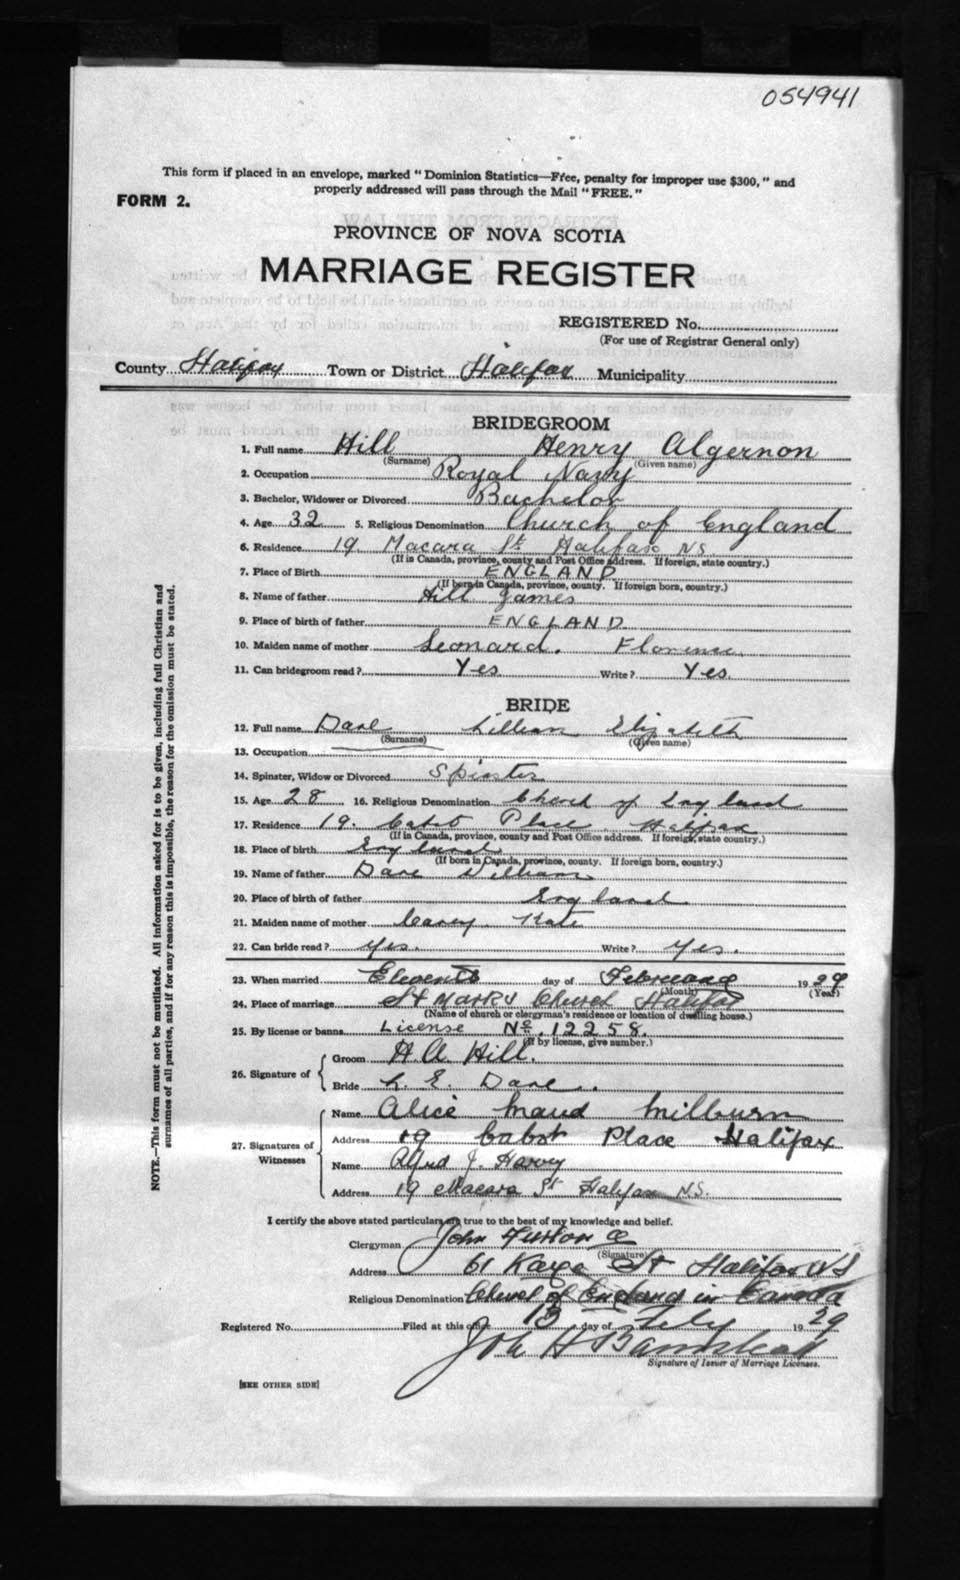 054941
This form if placed in an envelope, marked " Dominion Statistics—Free, penalty for improper use $300, " and
properly addressed will pass through the Mail " FREE. "
FORM 2.
PROVINCE OF NOVA SCOTIA
MARRIAGE REGISTER
REGISTERED No.
(For use of Registrar General only)
County Halifax Town or District Halifax Municipality
BRIDEGROOM
1. Full name Hill Henry Algernon
(Surname) (Given name)
2. Occupation Royal Navy
3. Bachelor, Widower or Divorced Bachelor
4. Age 32 5. Religious Denomination Church of England
6. Residence 19 Macara St. Halifax N.S.
(If in Canada, province, county and Post Office address. If foreign, state country.)
7. Place of Birth ENGLAND
(If born in Canada, province, county. If foreign born, country.)
8. Name of father Hill James
9. Place of birth of father ENGLAND
10. Maiden name of mother Leonard. Florence.
11. Can bridegroom read? Yes Write? Yes.
BRIDE
12. Full name Lillian Elizabeth
(Surname) (Given name)
13. Occupation
14. Spinster, Widow or Divorced Spinster
15. Age 28 16. Religious Denomination Church of England
17. Residence 19. Cabot Place Halifax
(If in Canada, province, county and Post Office address. If foreign, state country.)
18. Place of birth England
(If born in Canada, province, county. If foreign born, country.)
19. Name of father William
20. Place of birth of father England
21. Maiden name of mother Carey Kate
22. Can bride read? Yes. Write? Yes.
23. When married Eleventh day of February 1929
(Month) (Year)
24. Place of marriage St Marks Church Halifax
(Name of church or clergyman's residence or location of dwelling house.)
25. By license or banns License No. 12258.
(If by license, give number.)
26. Signature of
Groom H. A. Hill.
Bride L. E.
27. Signatures of Witnesses
Name Alice Maud Milburn
Address 19 Cabot Place Halifax
Name Alfred J. Harvy
Address 19 Macara St Halifax N.S.
I certify the above stated particulars are true to the best of my knowledge and belief.
Clergyman John
(Signature)
Address 61 Kaye St Halifax N S
Religious Denomination Church of England in Canada
Registered No. Filed at this office 13 day of Feby 1929
Signature of Issuer of Marriage Licenses.
[SEE OTHER SIDE]
NOTE.—This form must not be mutilated. All information asked for is to be given, including full Christian and
surnames of all parties, and if for any reason this is impossible, the reason for the omission must be stated.